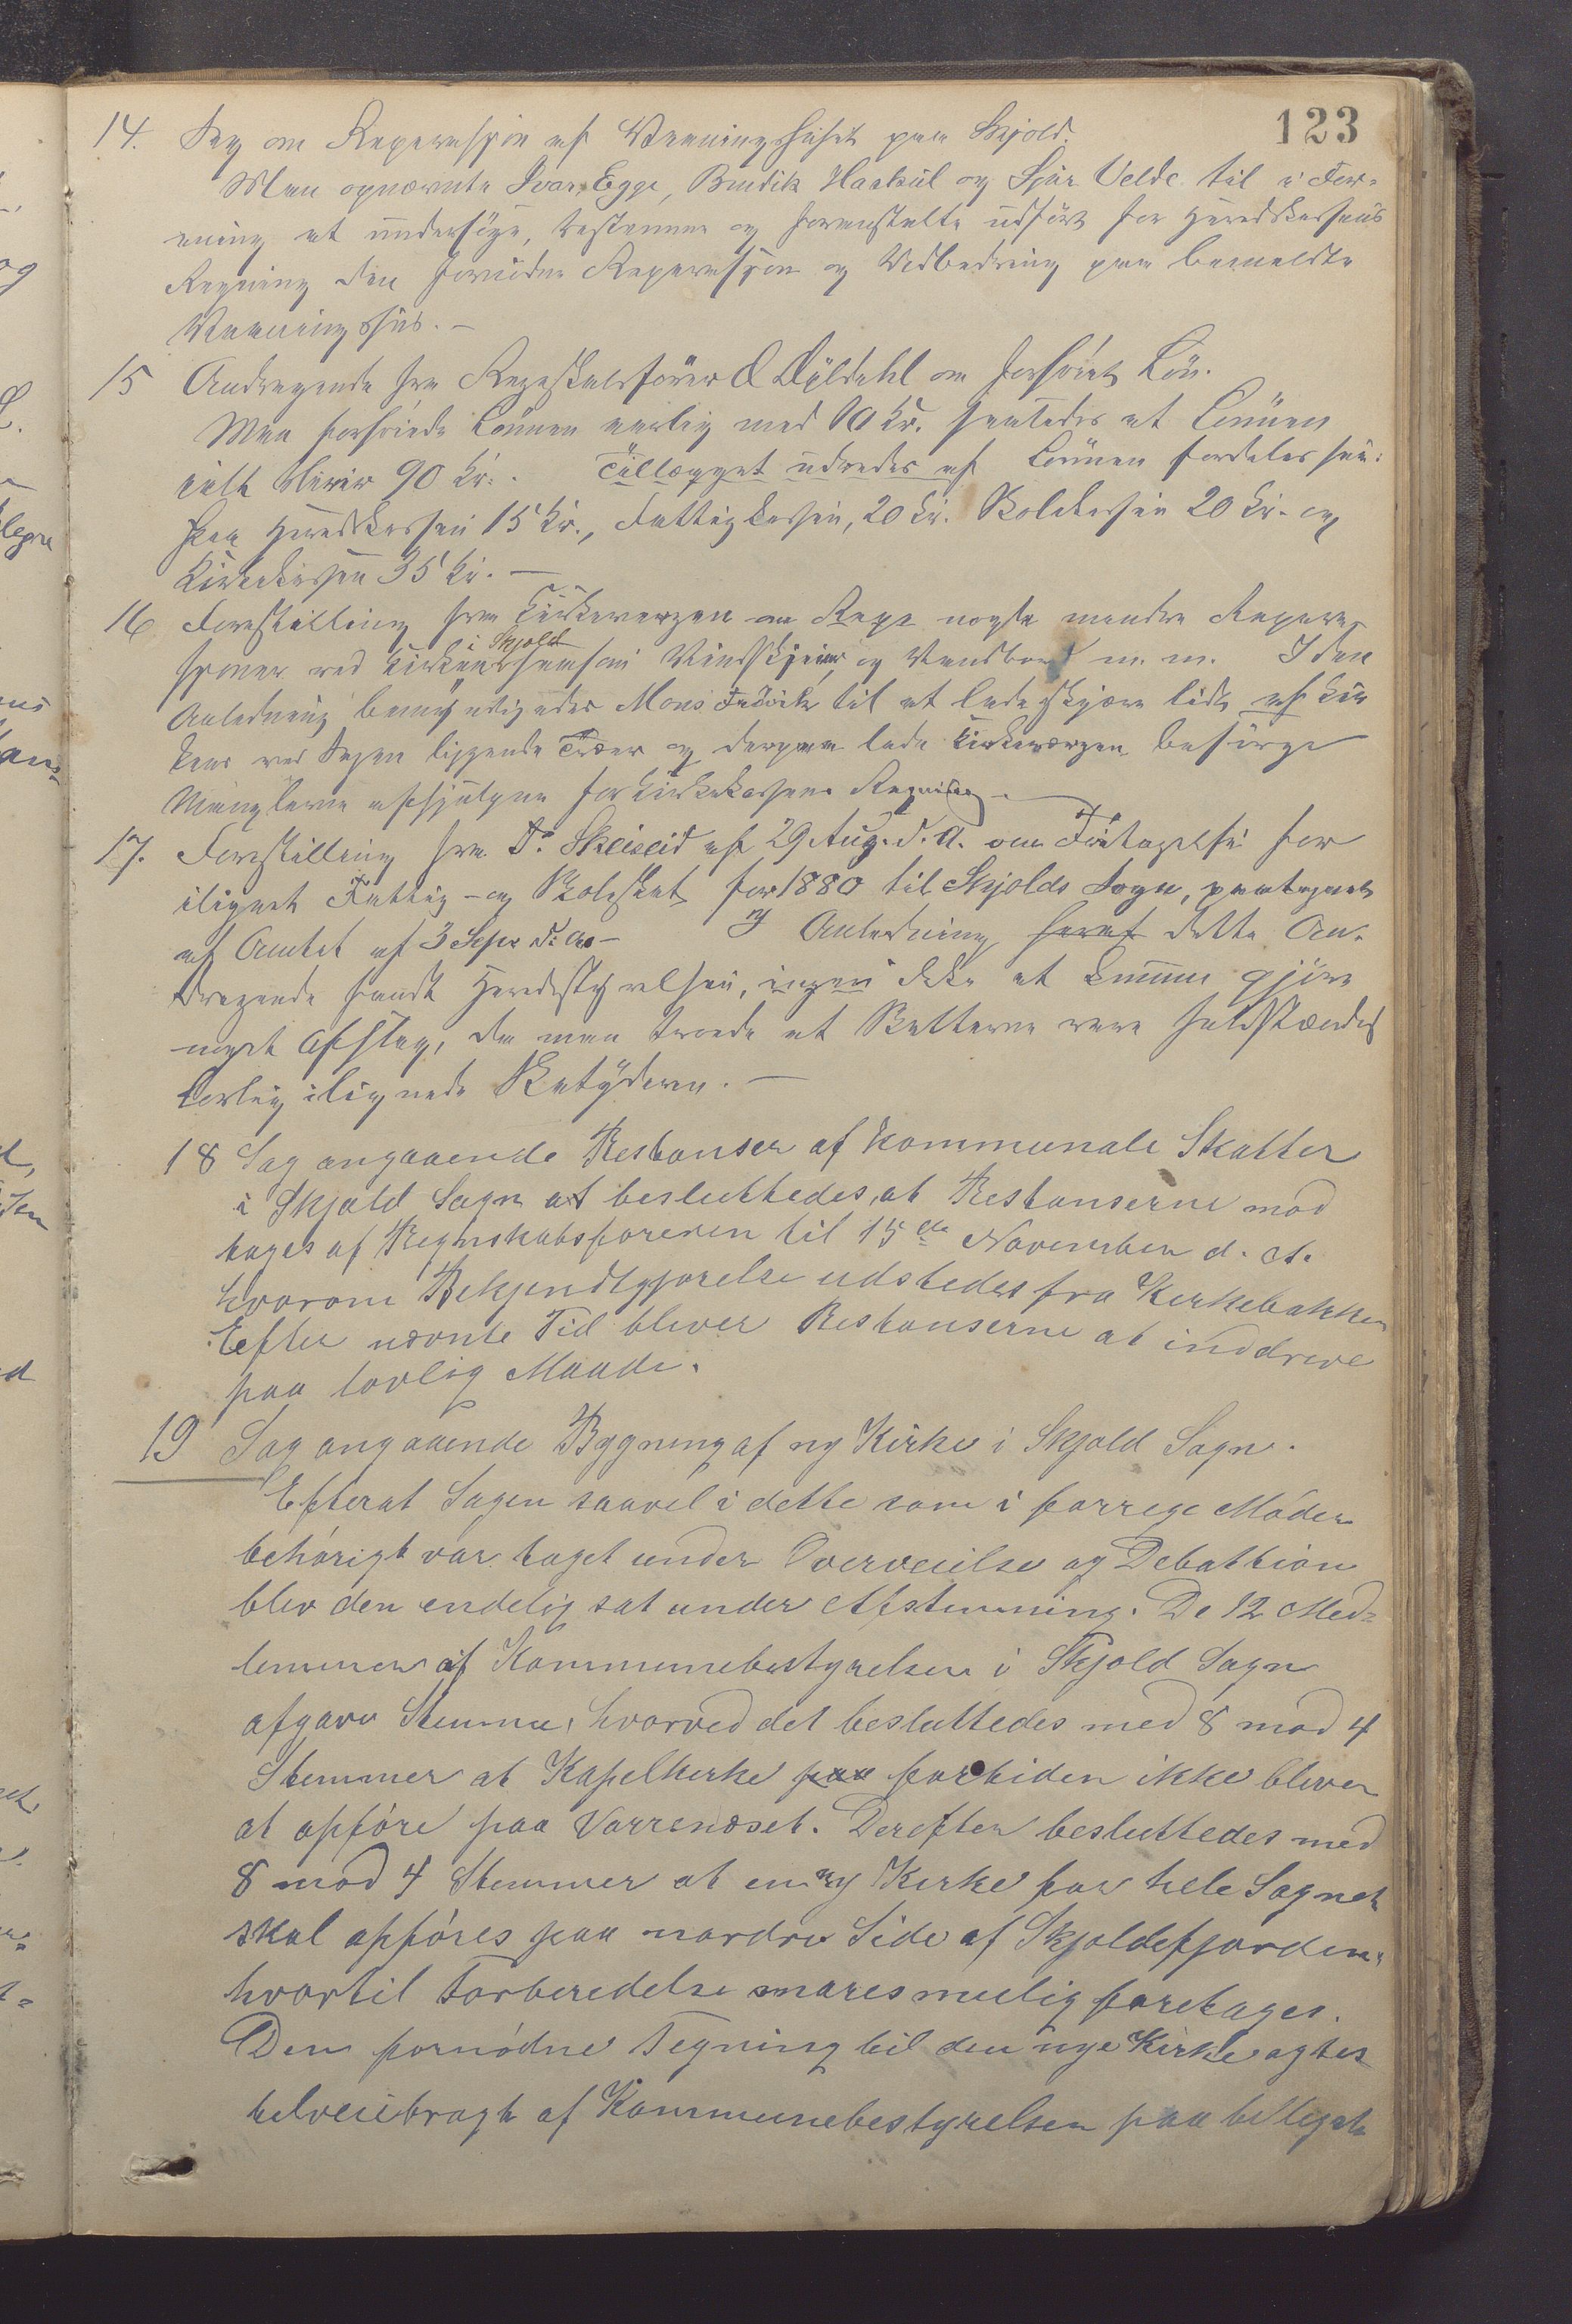 123
14. Sag om Reparasjon af Vaaningshuset paa Skjold.
Man opnævnte Ivar Egge, Bendik Haskül og Sjur Velde til i For-
ening at undersöge, bestemme og foranstalte udfört for Heredskassens
Regning den fornödne Reparasjon og Vedbedring paa bemeldte
Vaaningshus. -
15 Andragende fra Regnskabsförer O Dÿldahl om forhöiet Lön.
Man forhöiede Lönnen aarlig med 10 Kr. saaledes at Lönnen
ialt bliver 90 Kr. . Tillægget udredes af Lönnen fordeles saa:
Paa Heredskassen 15 Kr., Fattigkassen, 20 Kr. Skolekassen 20 Kr. og
Kirkekassen 35 Kr. -
16 Forestilling fra Kirkeværgen om nogle mindre Repara-
i Skjold
sjoner ved Kirken saasom Vindskjeier og Vandbord m. m. I den
Anledning bemyndigedes Mons til at lade skjære lidt af Kir
kens ved Sagen liggende Træer og derpaa lade Kirkeværgen besörge
Manglerne afhjulpne for Kirkekassens Regning -
17. Forestilling fra T. Skeiseid af 29 Aug. d. A. om Fritagelse for
ilignet Fattig- og Skoleskat for 1880 til Skjolds Sogn, paategnet
af Amtet af 3 Sepr d. A. - I Anledning heraf dette An-
dragende fandt Heredstyrelsen, ingen ikke at kunne gjöre
noget Afslag, da man troede at Skatterne vare fuldstændig
lovlig ilignede Skatyderen. -
18 Sag angaaende Restanser af kommunale Skatter
i Skjold Sogn at besluttedes, at Restanserne mod
tages af Regnskabsforeren til 15de November d. A.
hvorom Bekjendtgjorelse udstedes fra Kirkebakken
Eefter nævnte Tid bliver Restanserne at inddrive
paa lovlig Maade.
19 Sag angaaende Bygning af ny Kirke i Skjold Sogn.
Efterat Sagen saavel i dette som i forrege Möder
behörigt var taget under Overveielse og Debattion
blev den endelig sat under Afstemning. De 12 Med-
lemmer af Kommunebestyrelsen i Skjold Sogn
afgave Stemme, hvorved det besluttedes med 8 mod 4
Stemmer at Kapelkerke paa fortiden ikke bliver
at opföre paa Vorrenæset. Derefter besluttedes med
8 mod 4 Stemmer at en ny Kirke for hele Sognet
skal opföres paa nordre Side af Skjoldefjorden,
hvortil Forberedelse snaresmulig foretages.
Den fornödne Tegning til den nye Kirke agtes
telveiebragt af Kommunebestyrelsen paa billigste